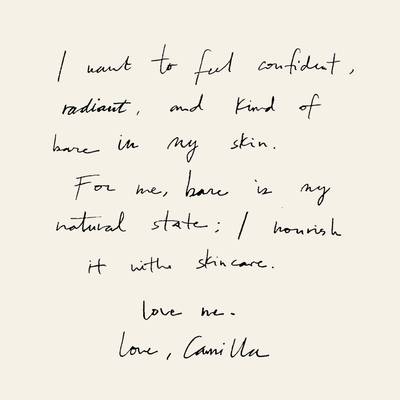 I want to feel confident,
radiant, and kind of
bare in my skin.
For me, bare is my
natural state; I nourish
it with skincare.
Love me.
Love, Camilla